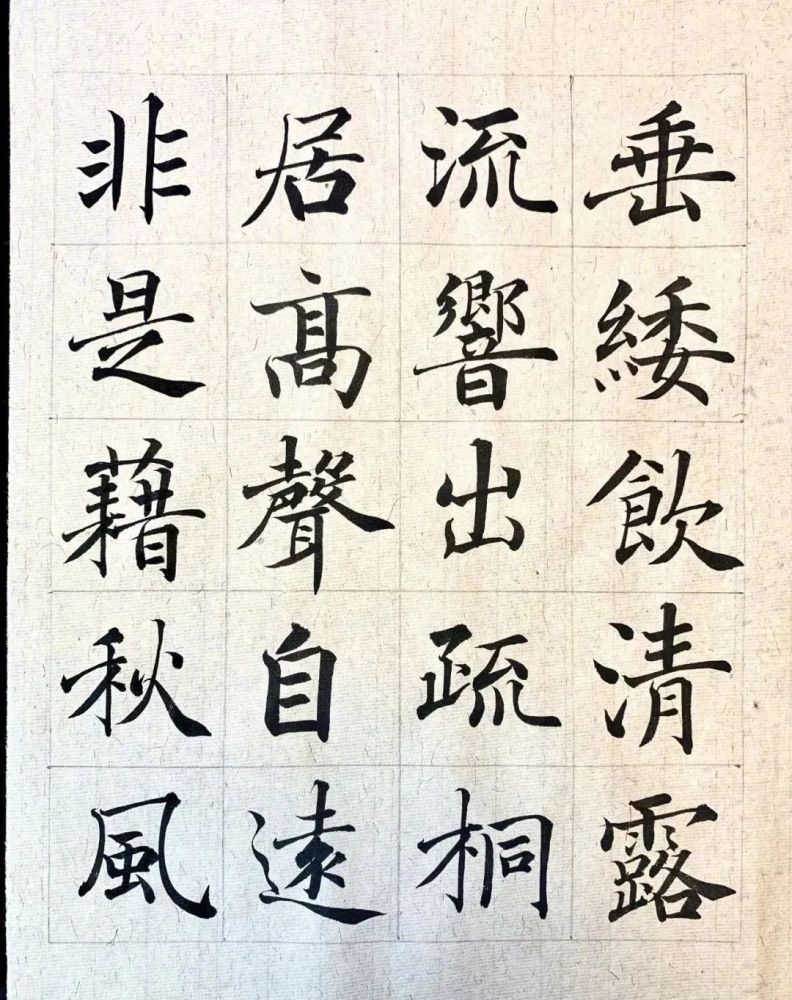 垂緌飲清露
流響出疏桐
居髙聲自遠
非是藉秋風